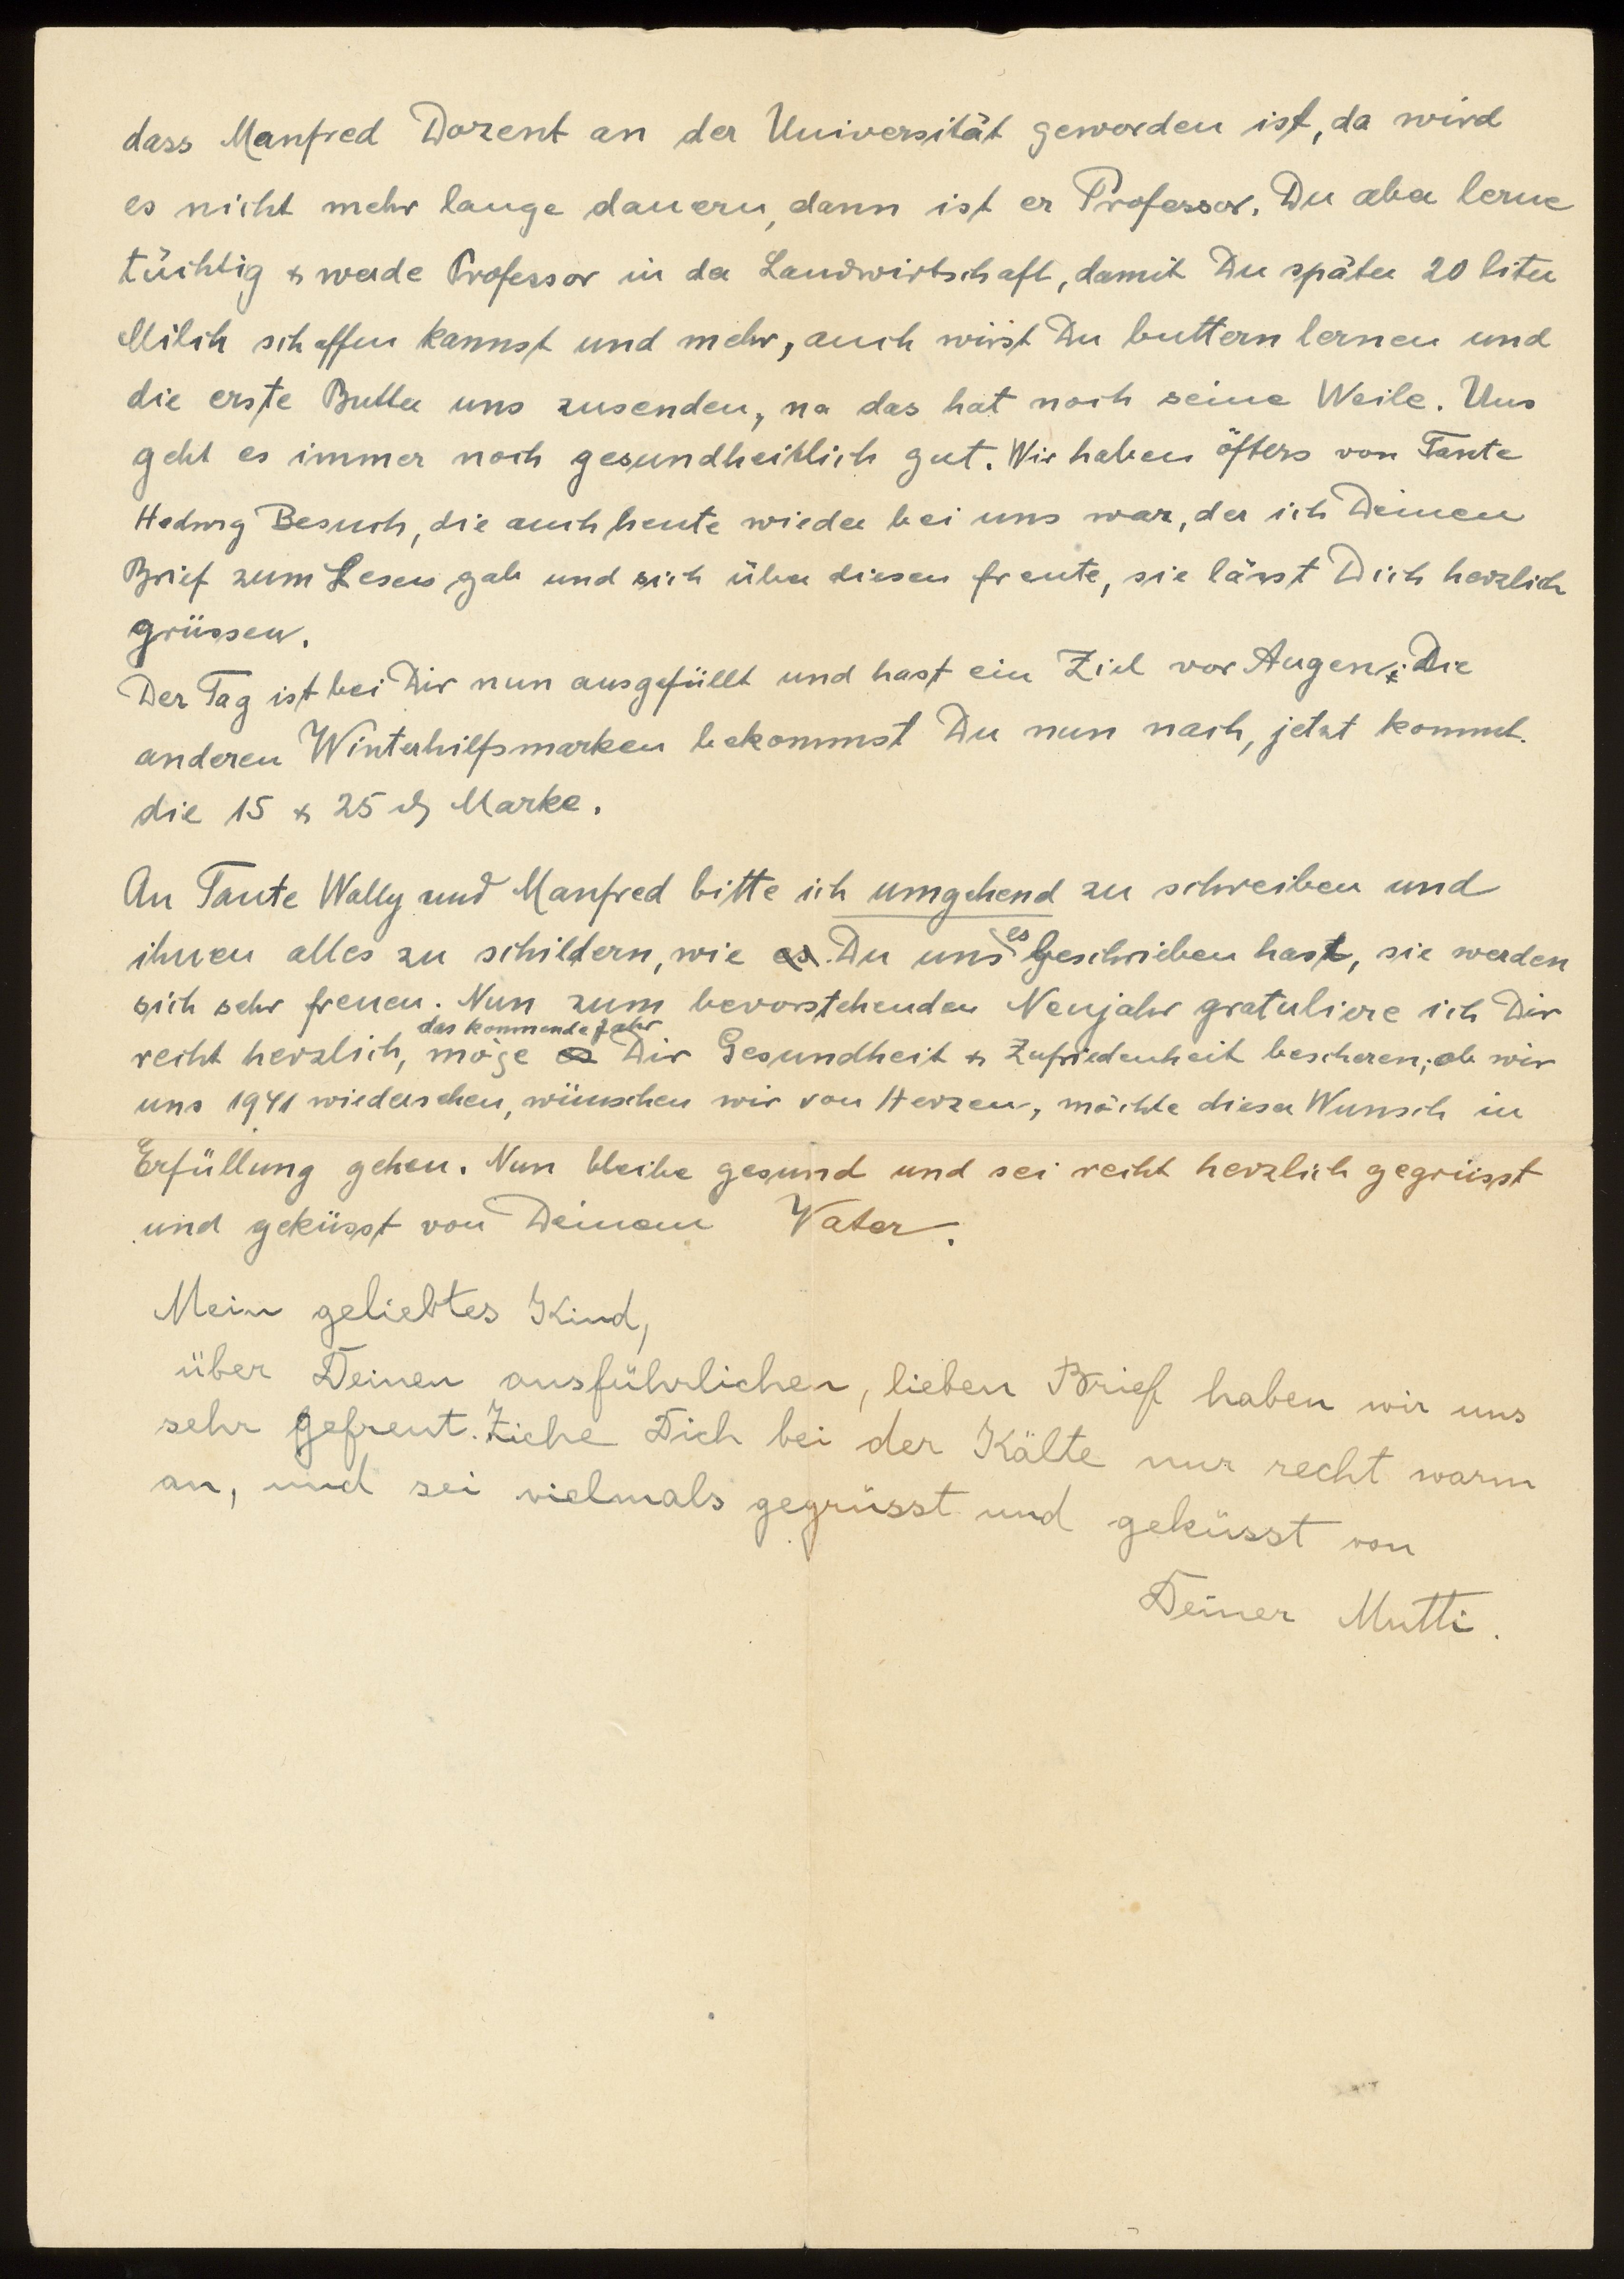 dass Manfred Dozent an der Universität geworden ist, da wird
es nicht mehr lange dauern, dann ist er Professor. Du aber lerne
tüchtig & werde Professor in der Landwirtschaft, damit Du später 20 liter
Milch schaffen kannst und mehr, auch wirst Du buttern lernen und
die erste Butter uns zusenden, na das hat noch seine Weile. Uns
geht es immer noch gesundheitlich gut. Wir haben öfters von Tante
Hedwig Besuch, die auch heute wieder bei uns war, der ich Deinen
Brief zum Lesen gab und sich über diesen freute, sie lässt Dich herzlich
grüssen.
Der Tag ist bei Dir nun ausgefüllt und hast ein Ziel vor Augen. Die
anderen Winterhilfsmarken bekommst Du nun nach, jetzt kommt
die 15 & 25 ₰ Marke.
An Tante Wally und Manfred bitte ich umgehend zu schreiben und
ihnen alles zu schildern, wie es Du uns es geschrieben hast, sie werden
sich sehr freuen. Nun zum bevorstehenden Neujahr gratuliere ich Dir
recht herzlich, möge das kommende Jahr Dir Gesundheit & Zufriedenheit bescheren; ob wir
uns 1941 wiedersehen, wünschen wir von Herzen, möchte dieser Wunsch in
Erfüllung gehen. Nun bleibe gesund und sei recht herzlich gegrüsst
und geküsst von Deinem Vater.
Mein geliebtes Kind,
über Deinen ausführlichen, lieben Brief haben wir uns
sehr gefreut. Ziehe Dich bei der Kälte nur recht warm
an, und sei vielmals gegrüsst und geküsst von
Deiner Mutti.